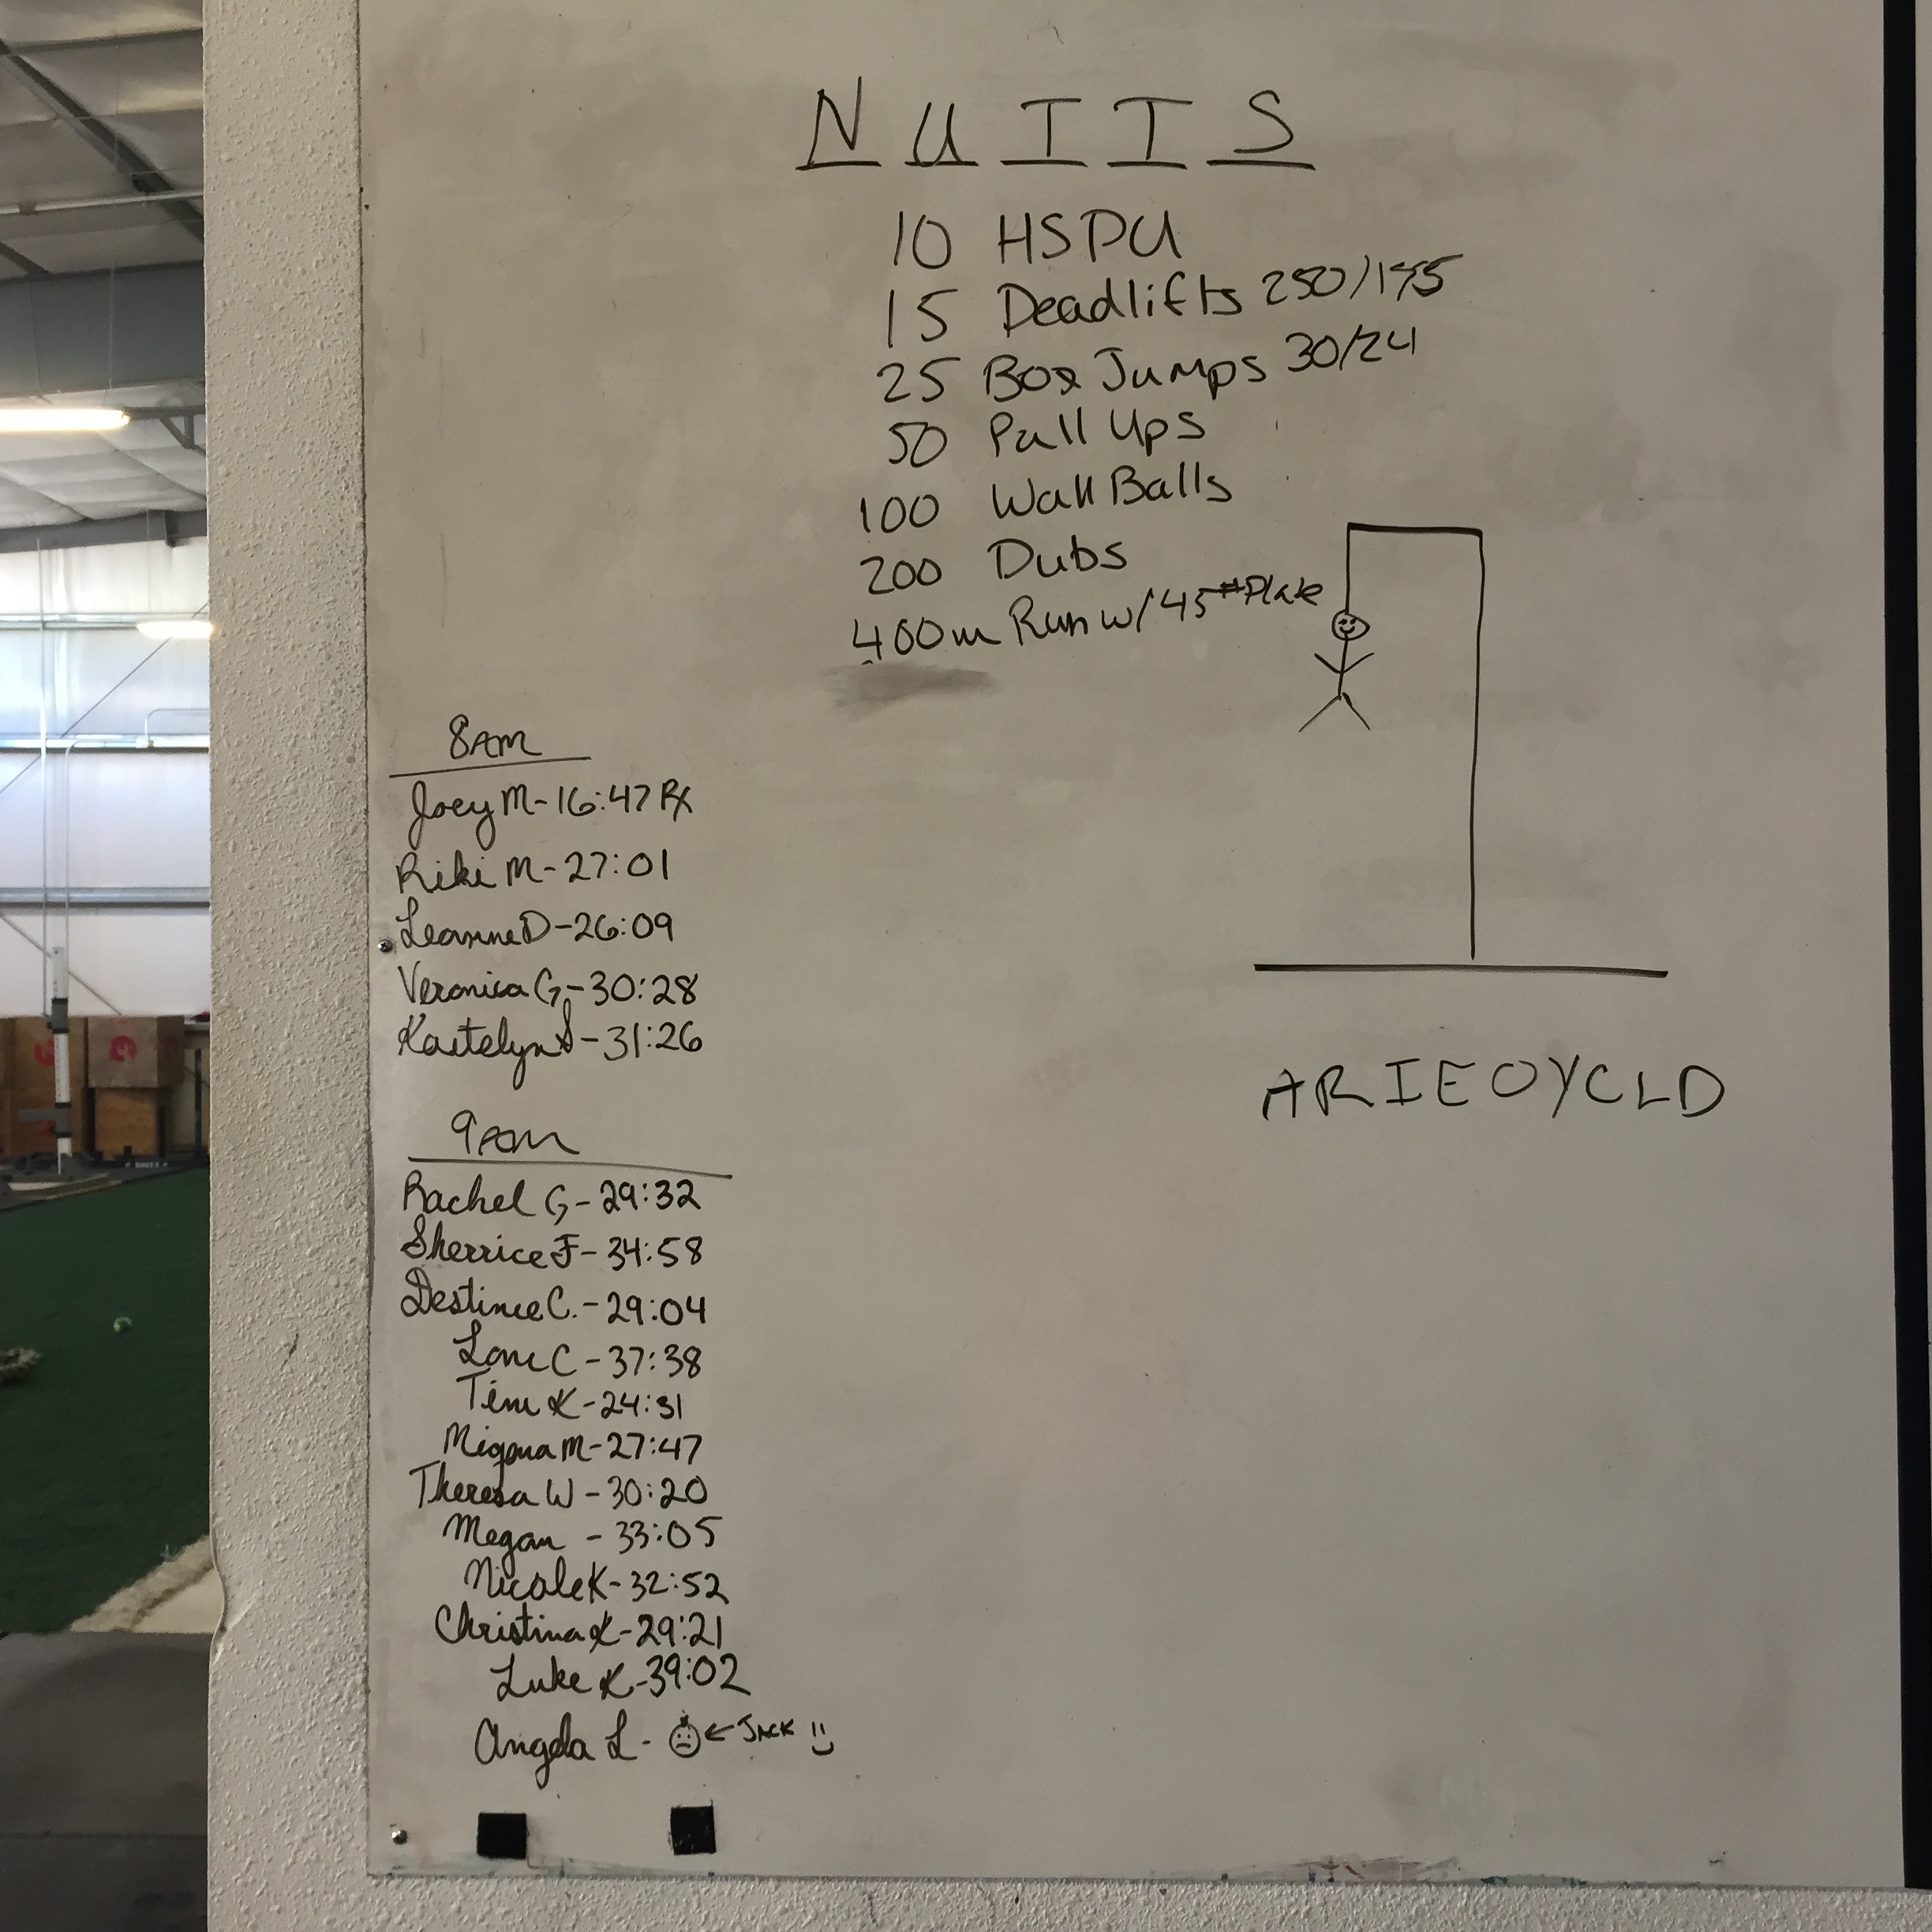 N U T T S
10 HSPU
15 Deadlifts 250/175
25 Box Jumps 30/24
50 Pull Ups
100 Wall Balls
200 Dubs
400m Run w/ 45# Plate
8AM
Joey M - 16:47 Rx
Riki M - 27:01
Leanne D - 26:09
Veronica G - 30:28
Kaitelyn S - 31:26
9AM
Rachel G - 29:32
Sherrice F - 34:58
Destinee C. - 29:04
C - 37:38
Tim K - 24:31
M - 27:47
Theresa W - 30:20
Megan - 33:05
Nicole K - 32:52
Christina K - 29:21
Luke K - 39:02
Angela L - ← JACK
ARIEOYCLD